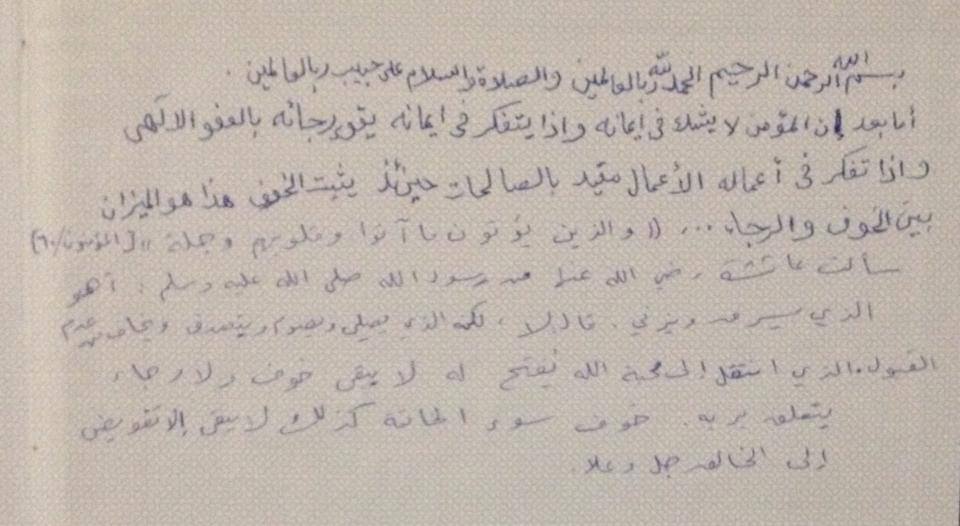 بسم الله الرحمن الرحيم الحمد لله رب العالمين والصلاة والسلام على حبيب رب العالمين .
أما بعد إن المؤمن لا يشك في إيمانه وإذا يتفكر في ايمانه يقوي رجائه بالعفو الالهى
وإذا تفكر في أعماله الأعمال مقيد بالصالحات حينئذ يثبت الخوف هذا هو الميزان
بين الخوف والرجاء ... (( والذين يؤتون ما آتوا وقلوبهم وجلة )) [المؤمنون/٦٠]
سألت عائشة رضي الله عنها من رسول الله صلى الله عليه وسلم : أهو
الذي يسرق ويزني . قال لا ، لكنه الذي يصلي ويصوم ويتصدق ويخاف من عدم
القبول . الذي انتقل إلى محبة الله يُفتح له لا يبقى خوف ولا رجاء
يتعلق بربه . خوف سوء الخاتمة كذلك لا يبقى إلا تفويض
إلى الخالق جل وعلا .